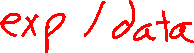 exp / data